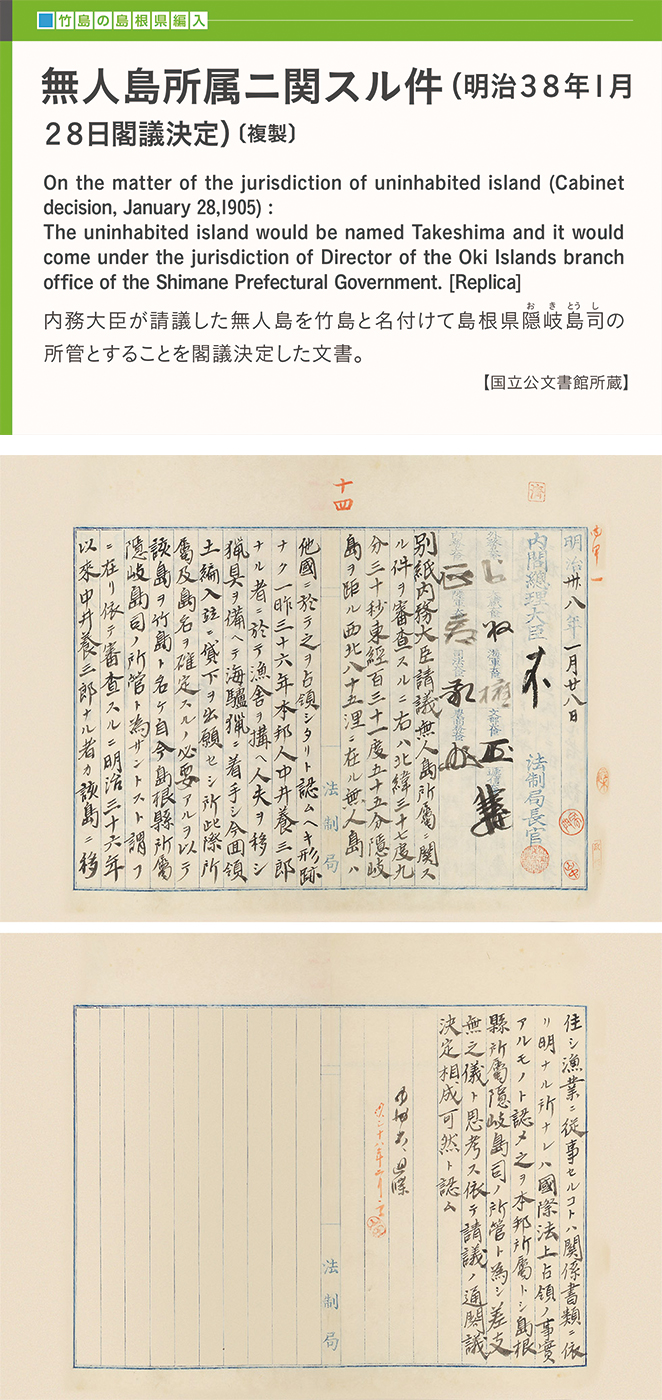 竹島の島根県編入
無人島所属ニ関スル件（明治38年1月
28日閣議決定）〔複製〕
On the matter of the jurisdiction of uninhabited island (Cabinet
decision, January 28,1905) :
The uninhabited island would be named Takeshima and it would
come under the jurisdiction of Director of the Oki Islands branch
office of the Shimane Prefectural Government. [Replica]
内務大臣が請議した無人島を竹島と名付けて島根県隠岐島司の
おきとうし
所管とすることを閣議決定した文書。
【国立公文書館所蔵】
十四
明治卅八年一月廿八日
内閣總理大臣
法制局長官
別紙内務大臣請議無人島所屬ニ関ス
ル件ヲ審査スルニ右ハ北緯三十七度九
分三十秒東経百三十一度五十五分隠岐
島ヲ距ル西北八十五浬ニ在ル無人島ハ
他國ニ於テ之ヲ占領シタリト認ムヘキ形跡
ナク一昨三十六年本邦人中井養三郎
ナル者ニ於テ漁舎ヲ構ヘ人夫ヲ移シ
獵具ヲ備ヘテ海驢獵ニ着手シ今回領
土編入竝ニ貸下ヲ出願セシ所此際所
屬及島名ヲ確定スルノ必要アルヲ以テ
該島ヲ竹島ト名ケ自今島根縣所屬
隠岐島司ノ所管ト為サントスト謂フ
ニ在リ依テ審査スルニ明治三十六年
以来中井養三郎ナル者カ該島ニ移
法制局
住シ漁業ニ従事セルコトハ関係書類ニ依
リ明ナル所ナレハ國際法上占領ノ事實
アルモノト認メ之ヲ本邦所屬トシ島根
縣所屬隠岐島司ノ所管ト為シ差支
無之儀ト思考ス依テ請議ノ通閣議
決定相成可然ト認ム
法制局